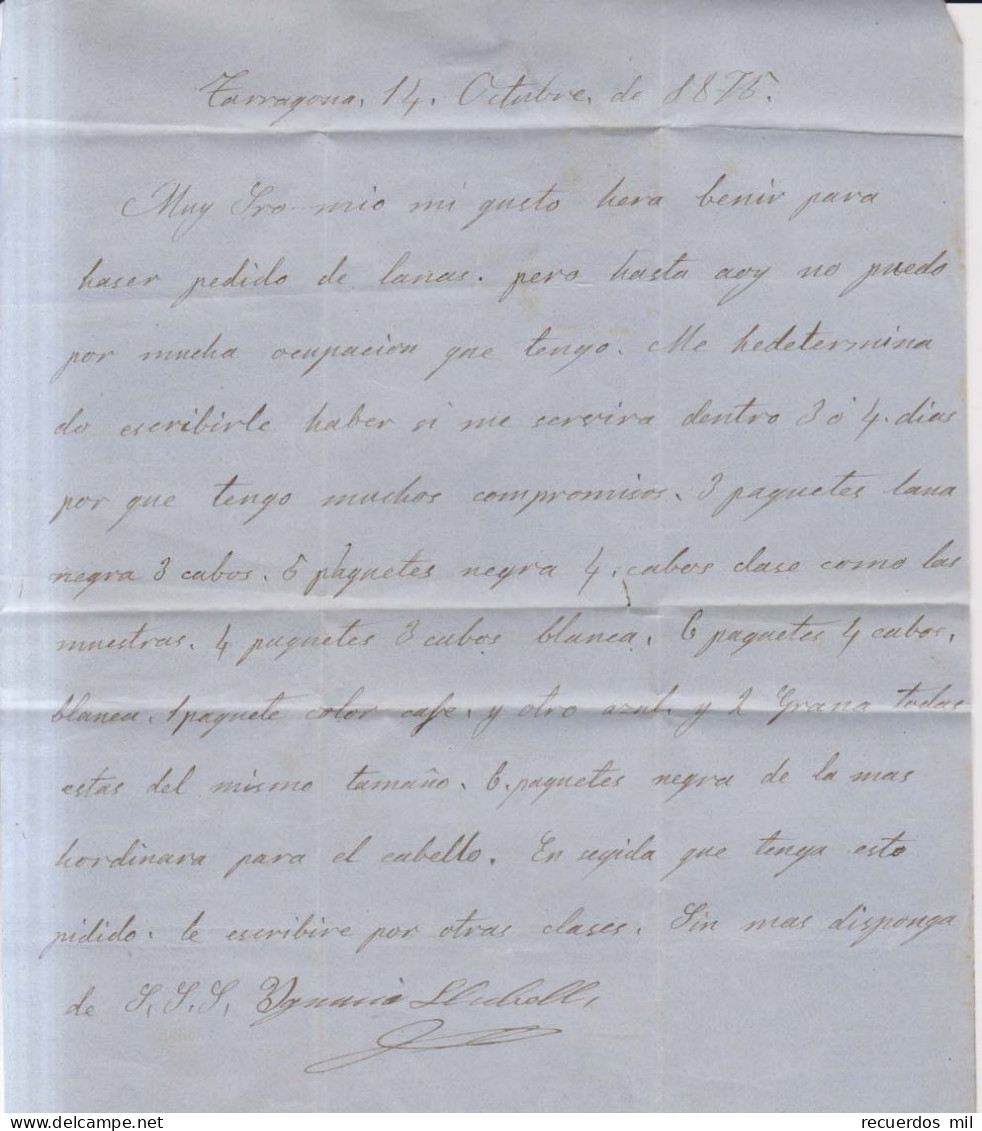 Tarragona, 14, Octubre, de 1875.
Muy Sro mio mi gusto hera benir para
haser pedido de lanas. pero hasta aoy no puedo
por mucha ocupacion que tengo. Me hedetermina
do escribirle haber si me servira dentro 3 ó 4. dias
por que tengo muchos compromisos. 3 paquetes lana
negra 3 cabos. 5 paquetes negra 4, cabos clase como las
muestras. 4 paquetes 3 cabos blanca, 6 paquetes 4 cabos,
blanca, 1 paquete color cafe. y otro azul. y 2 Grana todas
estas del mismo tamaño. 6. paquetes negra de la mas
hordinara para el cabello. En segida que tenga esto
pidido. le escribire por otras clases. Sin mas disponga
de S, S, S, Llubell,
recuerdos mil